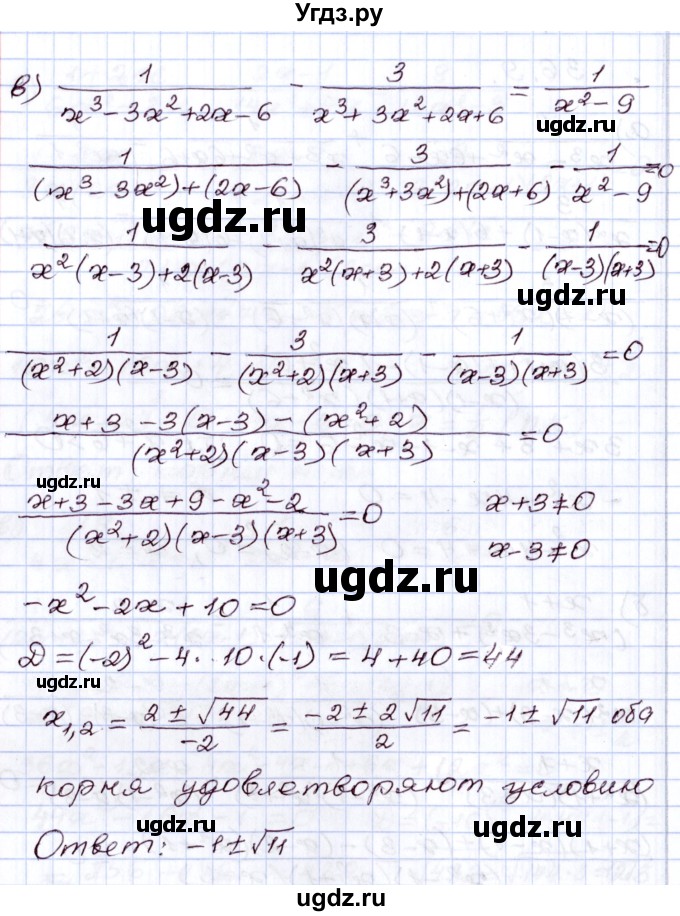 Угдз.ру
в) 1/(x³-3x²+2x-6) - 3/(x³+3x²+2x+6) = 1/(x²-9)
ugdz.ru
1/((x³-3x²)+(2x-6)) - 3/((x³+3x²)+(2x+6)) - 1/(x²-9) =0
ugdz.ru
1/(x²(x-3)+2(x-3)) - 3/(x²(x+3)+2(x+3)) - 1/((x-3)(x+3)) =0
ugdz.ru
1/((x²+2)(x-3)) - 3/((x²+2)(x+3)) - 1/((x-3)(x+3)) =0
(x+3-3(x-3)-(x²+2))/((x²+2)(x-3)(x+3)) =0
ugdz.ru
(x+3-3x+9-x²-2)/((x²+2)(x-3)(x+3)) =0 x+3≠0
x-3≠0
ugdz.ru
-x²-2x+10=0
Д=(-2)²-4·10·(-1)=4+40=44
ugdz.ru
x₁,₂ = (2±√44)/(-2) = (-2±2√11)/2 = -1±√11 оба
ugdz.ru
корня удовлетворяют условию
ugdz.ru
Ответ: -1±√11
ugdz.ru
ugdz.ru